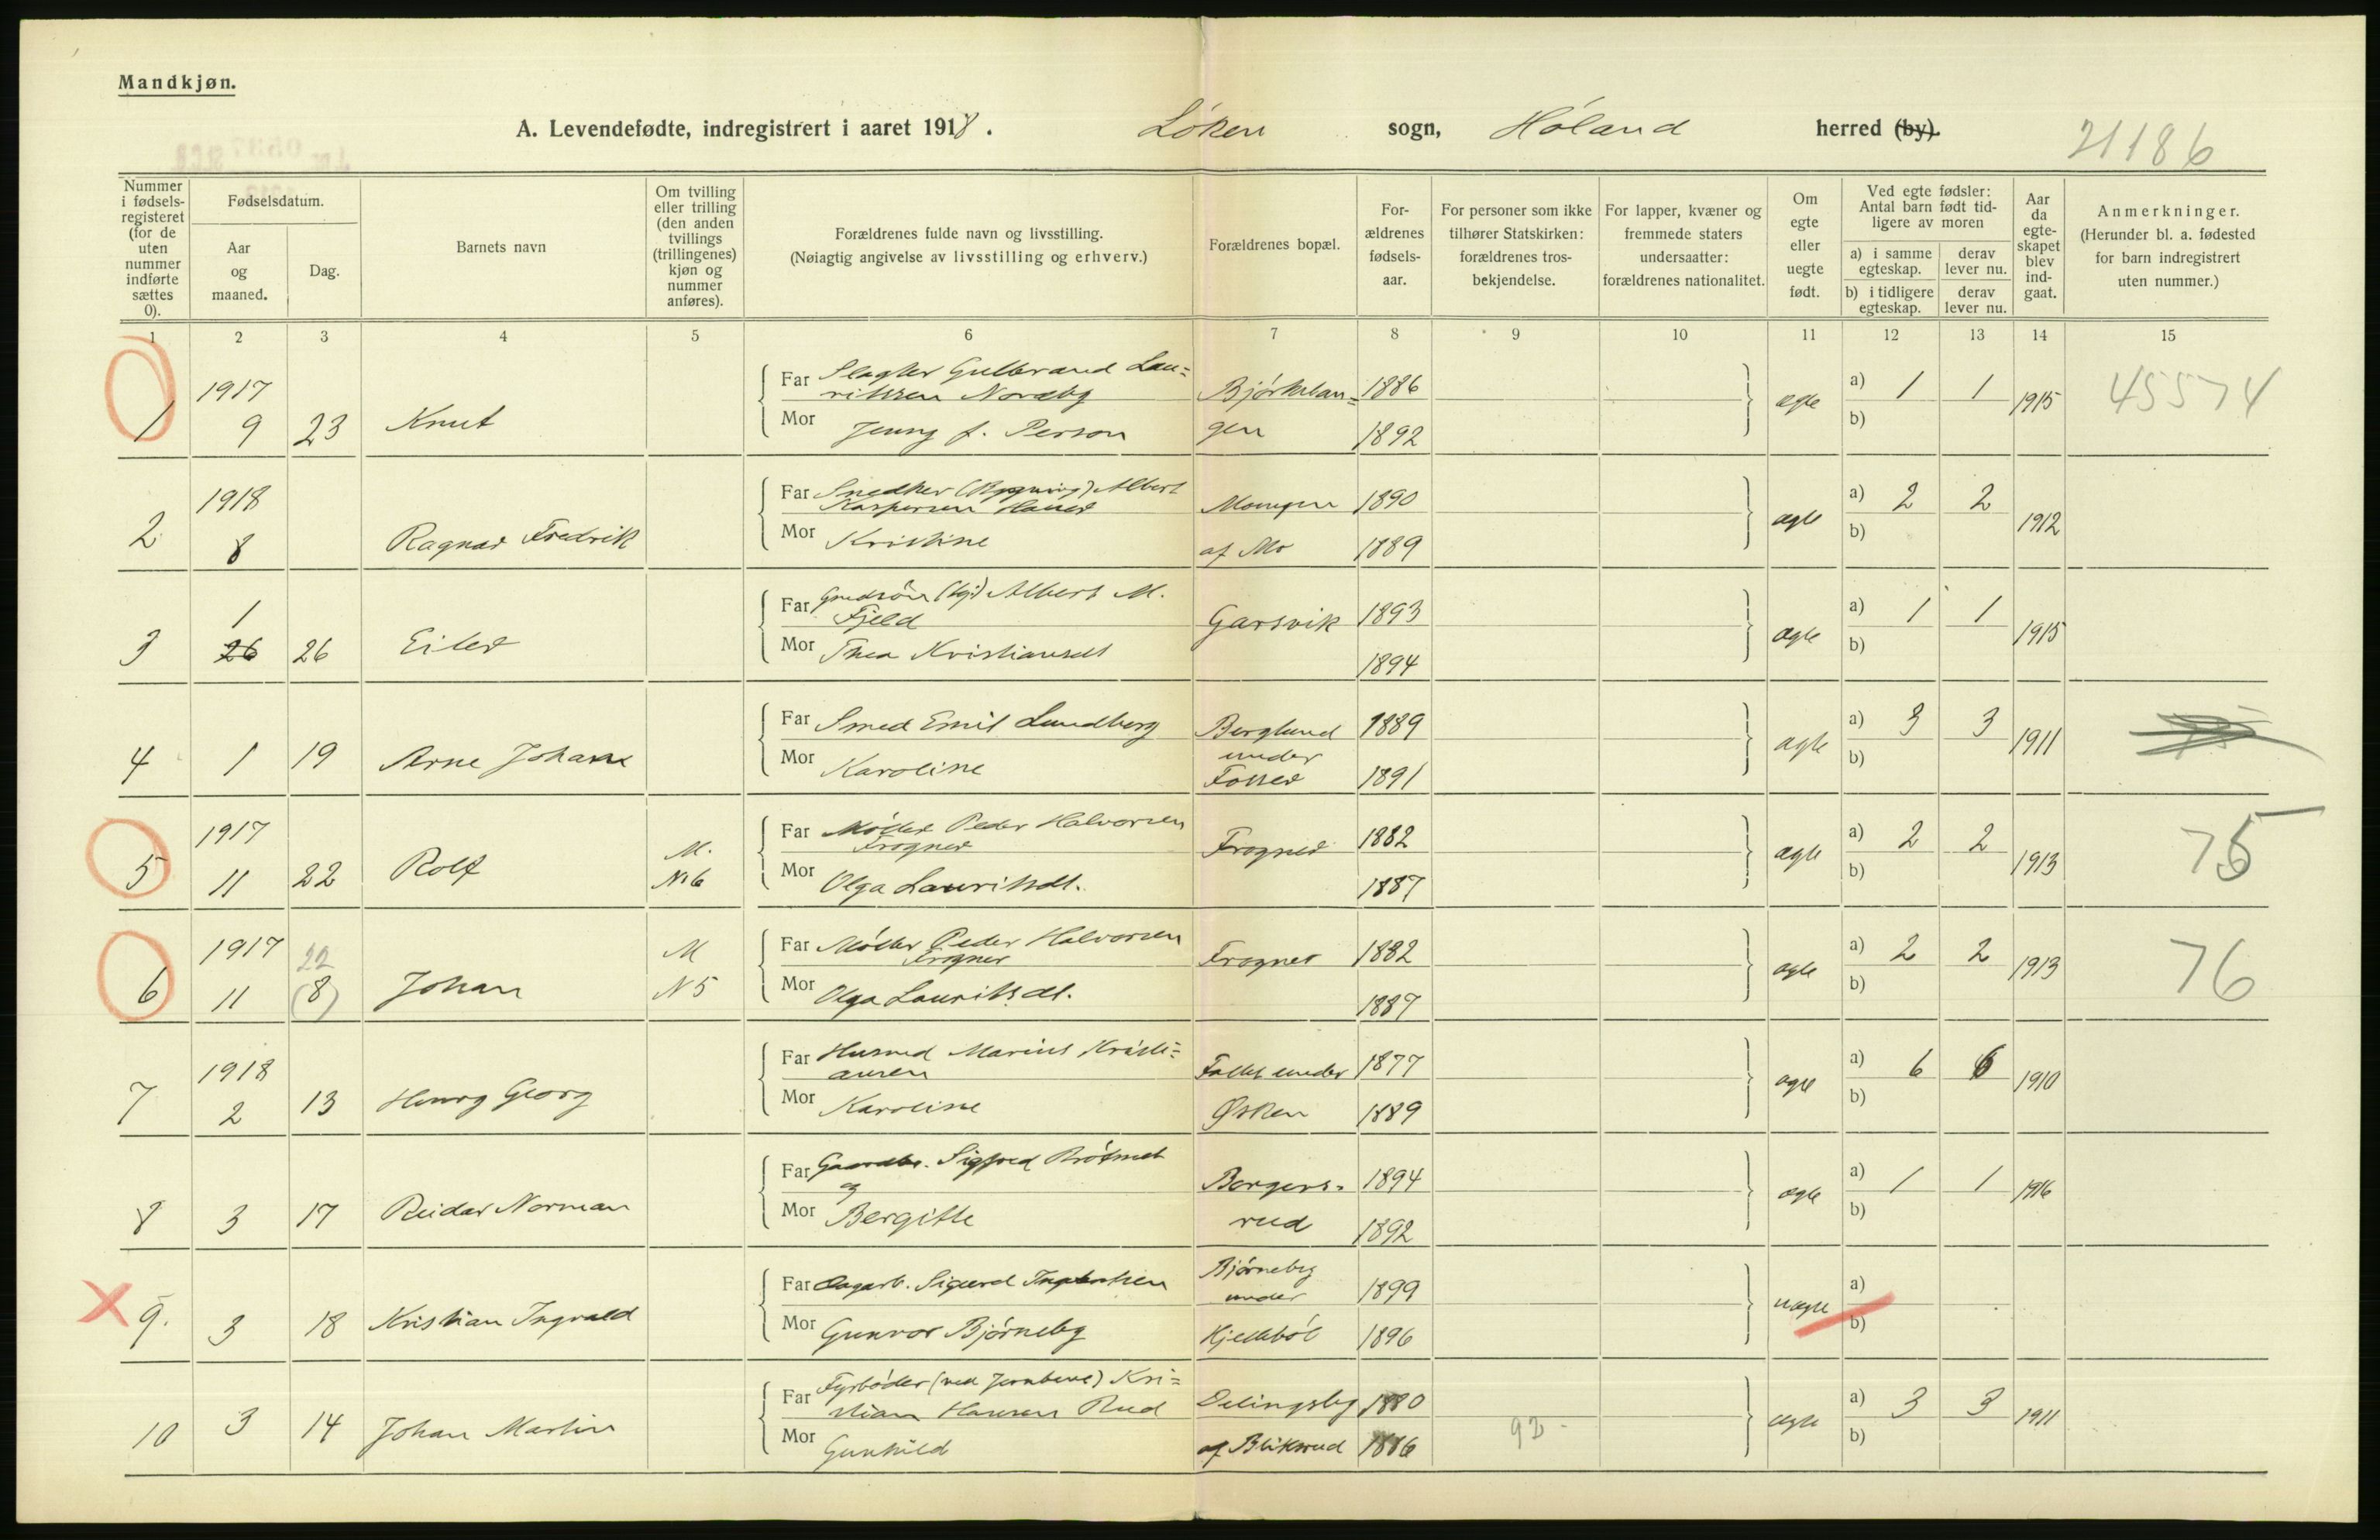 Mandkjøn.
A. Levendefødte, indregistrert i aaret 1918. Løken sogn, Høland herred (by).
21186
Nummer i fødsels-registeret (for de uten nummer indførte sættes 0).
Fødselsdatum.
Aar og maaned.
Dag.
Barnets navn
Om tvilling eller trilling (den anden tvillings (trillingenes) kjøn og nummer anføres).
Forældrenes fulde navn og livsstilling.
(Nøiagtig angivelse av livsstilling og erhverv.)
Forældrenes bopæl.
For-ældrenes fødsels-aar.
For personer som ikke tilhører Statskirken: forældrenes tros-bekjendelse.
For lapper, kvæner og fremmede staters undersaatter: forældrenes nationalitet.
Om egte eller uegte født.
Ved egte fødsler: Antal barn født tid-ligere av moren
a) i samme egteskap. derav lever nu.
b) i tidligere egteskap. derav lever nu.
Aar da egte-skapet blev ind-gaat.
Anmerkninger.
(Herunder bl. a. fødested for barn indregistrert uten nummer.)
1 2 3 4 5 6 7 8 9 10 11 12 13 14 15
Far Slagter Gulbrand Lau= Bjørkelan= 1886 a) 1 1
1917 ritsen Nordby egte 1915 45574
1 9 23 Knut Mor Jenny f. Person gen 1892 b)
Far Snedker (Bygning) Albert 1890 a) 2 2
1918 Kaspersen egte 1912
2 8 Ragnar Fredrik Mor Kristine af Mo 1889 b)
Far Albert M. 1893 a) 1 1
1 Fjeld Garsvik egte 1915
3 26 26 Eiler Mor Thea Kristiansdt 1894 b)
Far Smed Emil Lundberg Berglund 1889 a) 3 3
under egte 1911
4 1 19 Arne Johan Mor Karoline Fosser 1891 b)
Far Møller Peder Halvorsen 1882 a) 2 2
1917 M. Frogner Frogner egte 1913 75
5 11 22 Rolf N6 Mor Olga Lauritsdt. 1887 b)
Far Møller Peder Halvorsen 1882 a) 2 2
1917 22 M Frogner Frogner egte 1913 76
6 11 (8) Johan N5 Mor Olga Lauritsdt. 1887 b)
Far Husmd Marius Kristi= 1877 a) 6 6
1918 ansen under egte 1910
7 2 13 Henry Georg Mor Karoline Østen 1889 b)
Far Gaardbr. Sigfred Borgers= 1894 a) 1 1
og egte 1916
8 3 17 Reidar Norman Mor Bergitte rud 1892 b)
Far Dagarb. Sigurd Bjørneby 1899 a)
under uegte
9. 3 18 Kristian Ingvald Mor Gunvor Bjørneby Kjelleböl 1896 b)
Far Fyrbøder (ved Jernbane) Kri= 1880 a) 3 3
stian Hansen Rud egte 1911
10 3 14 Johan Martin Mor Gunhild af Bliksrud 1886 b)